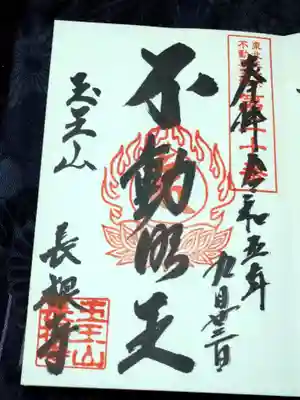 奉拝 令和五年
九月廿三日
不動明王
玉王山
長根寺
玉王山
長根寺